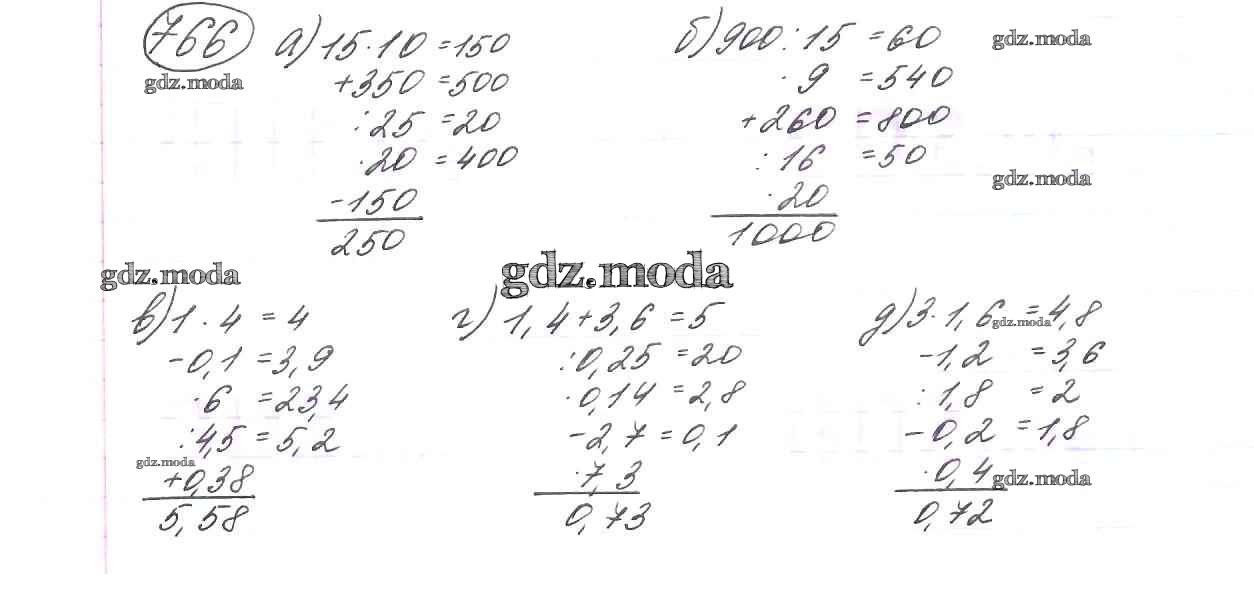 766
gdz.moda
а) 15 · 10 = 150
+350 = 500
: 25 = 20
· 20 = 400
- 150
250
б) 900 : 15 = 60
gdz.moda
· 9 = 540
+260 = 800
: 16 = 50
gdz.moda
· 20
1000
gdz.moda
gdz.moda
в) 1 · 4 = 4
- 0,1 = 3,9
· 6 = 23,4
: 4,5 = 5,2
gdz.moda
+0,38
5,58
г) 1,4 + 3,6 = 5
: 0,25 = 20
· 0,14 = 2,8
- 2,7 = 0,1
· 7,3
0,73
д) 3 · 1,6 = 4,8
gdz.moda
- 1,2 = 3,6
: 1,8 = 2
- 0,2 = 1,8
· 0,4
gdz.moda
0,72